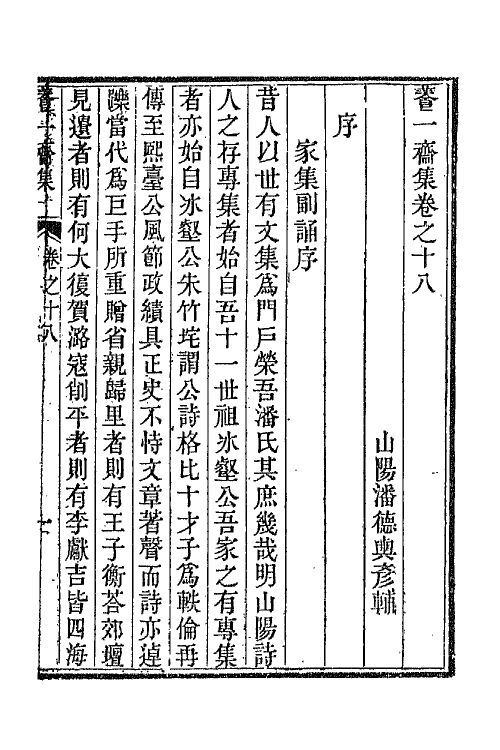 養一齋集卷之十八
山陽潘德輿彥輔
序
家集副誦序
昔人以世有文集爲門戶榮吾潘氏其庶幾哉明山陽詩
人之存專集者始自吾十一世祖冰壑公吾家之有專集
者亦始自冰壑公朱竹垞謂公詩格比十才子爲軼倫再
傳至熙臺公風節政績具正史不恃文章著聲而詩亦逴
躒當代爲巨手所重贈省親歸里者則有王子衡荅郊壇
見遺者則有何大復賀潞寇削平者則有李獻吉皆四海
養一齋集 卷之十八 一